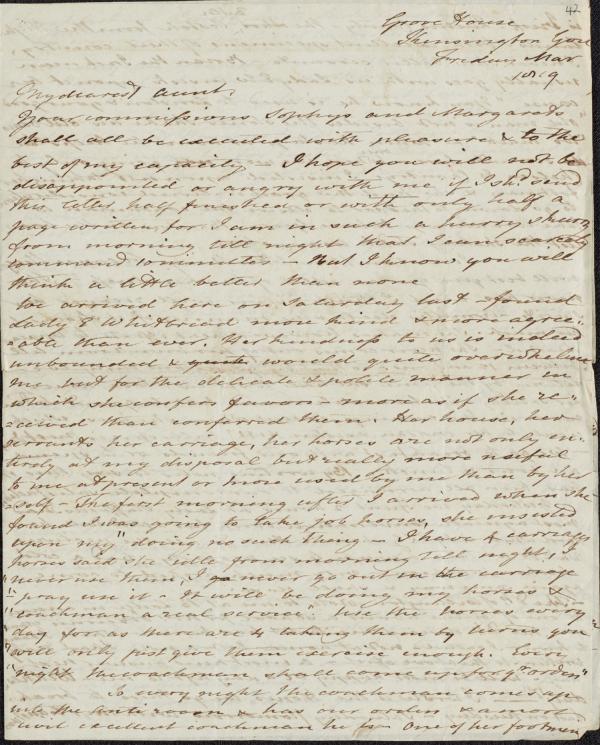 42
Grove House
Kensington Gore
Friday Mar
1819
My dearest Aunt,
Your commissions Sophys and Margarets
shall all be executed with pleasure & to the
best of my capacity I hope you will not be
disappointed or angry with me if I shd. send
this letter half finished or with only half a
page written for I am in such a hurry
from morning till night that I can scarcely
command 10 minutes – But I know you will
think a little better than none
We arrived here on Saturday last – found
Lady E Whitbread more kind & more agree-
-able than ever. Her kindness to us is indeed
unbounded & quite would quite overwhelm
me but for the delicate & polite manner in
which she confers favors – more as if she re-
-ceived than conferred them. Her house, her
servants her carriage, her horses are not only en-
tirely at my disposal but really more useful
to me at present or more used by me than by her
-self – The first morning after I arrived when she
found I was going to take job horses, she insisted
upon my "doing no such thing – I have 4 carriage
horses said she idle from morning till night, I
"never use them, I go never go out in the carriage
"pray use it – It will be doing my horses &
"coachman a real service" Use the horses every
day for as there are 4 taking them by turns you
"will only just give them exercise enough. Every
"night the coachman shall come up for yr orders"
So every night the coachman comes up
into the anti room & has our orders & a most
civil excellent coachman he is One of her footmen